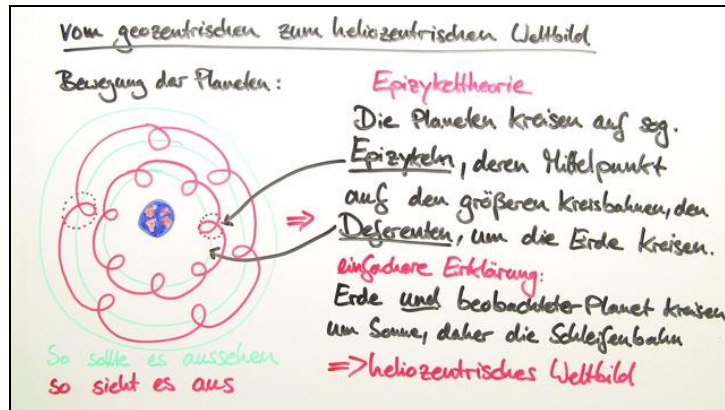 Vom geozentrischen zum heliozentrischen Weltbild
Bewegung der Planeten:
So sollte es aussehen
so sieht es aus
Epizykeltheorie
Die Planeten kreisen auf sog.
Epizykeln, deren Mittelpunkt
auf den größeren Kreisbahnen, den
Deferenten, um die Erde kreisen.
einfachere Erklärung:
Erde und beobachteter Planet kreisen
um Sonne, daher die Schleifenbahn
=> heliozentrisches Weltbild